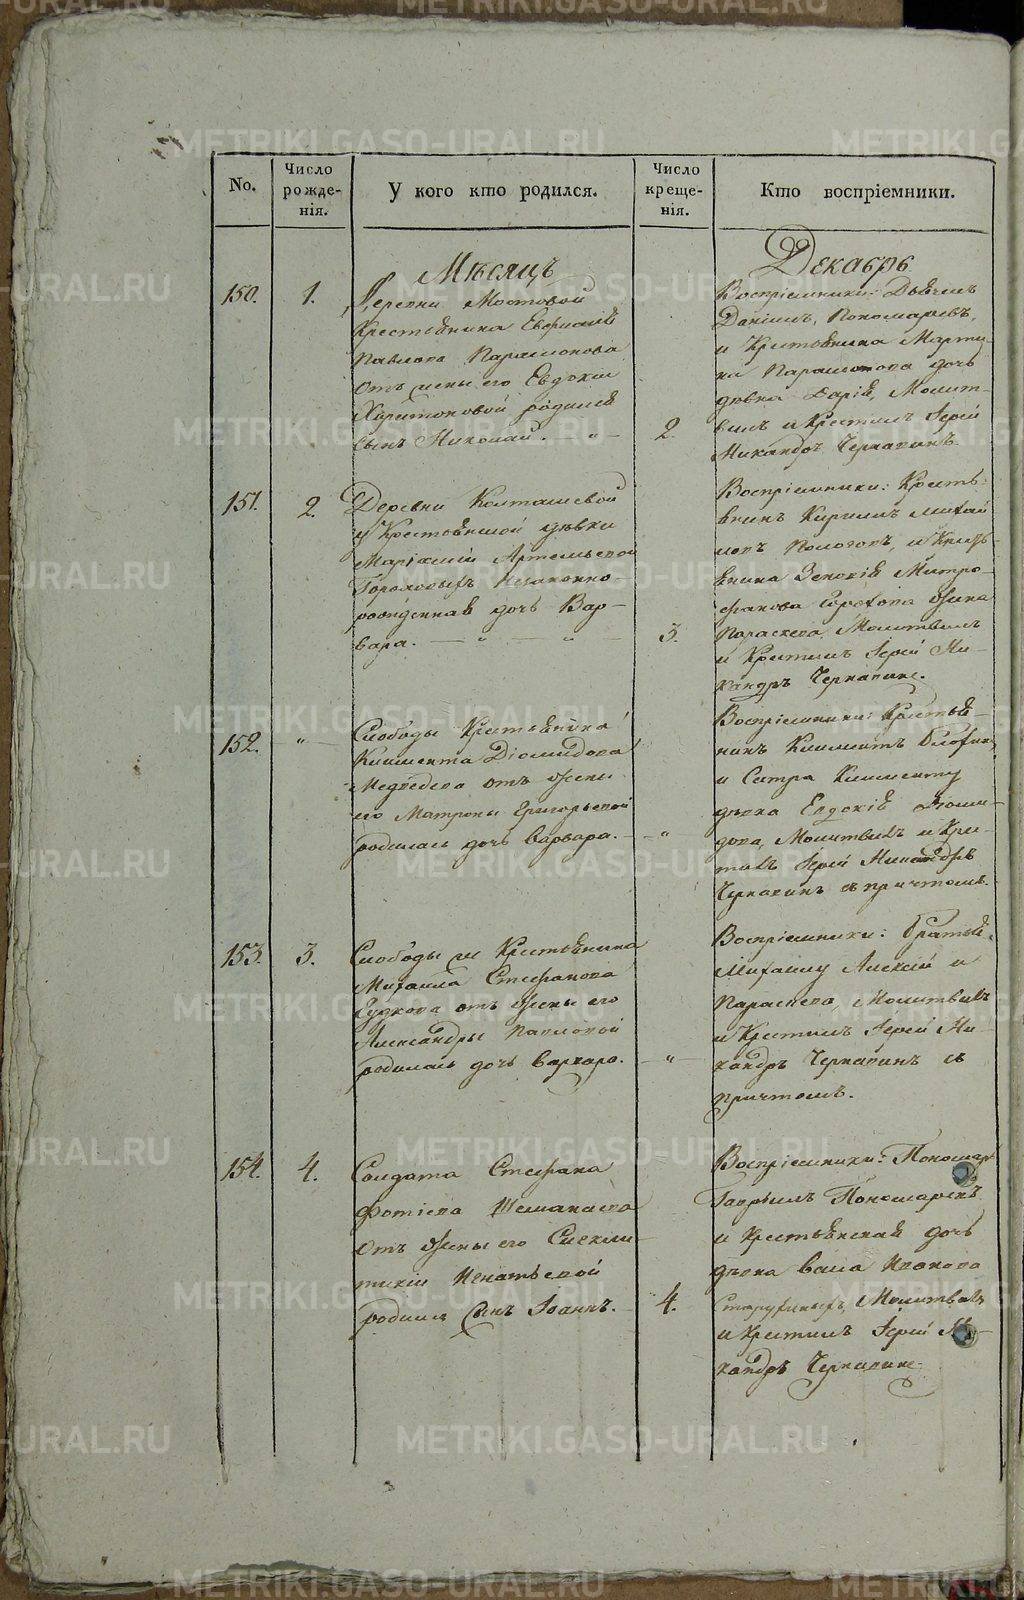 METRIKI.GASO-URAL.RU
No.
Число рожде-нія.
У кого кто родился.
Число креще-нія.
Кто воспріемники.
Мѣсяцъ
Декабрь
150.
1.
Деревни Мостовой
Крестьянина Евфимія
Павлова Парамонова
отъ жены его Евдокіи
Харитоновой родился
сынъ Николай.
2.
Воспріемники: Дьячекъ
Даніилъ Пономаревъ,
и Крестьянина Марти-
на Парамонова дочь
дѣвка Дарія, Молит-
вилъ и Крестилъ Іерей
Никандръ Чернавинъ
151.
2.
Деревни Колташевой
у Крестьянской дѣвки
Артемьевой
Гороховыхъ Незаконно-
рожденная дочь Вар-
вара.
3.
Воспріемники: Кресть-
янинъ Кирилъ Михай
ловъ и Кресть-
янина Зиновія Митро-
фанова Горохова жена
Параскева, Молитвилъ
и Крестилъ Іерей Ни-
кандръ Чернавинъ.
152.
"
Слободы Крестьянина
Климента Діомидова
Медведева отъ жены
его Матроны Григорьевой
родилась дочь Варвара.
"
Воспріемники: Крестья-
нинъ Климентъ
и Сестра Клименту
дѣвка Евдокія Діоми-
дова, Молитвилъ и Кре-
стилъ Іерей Никандръ
Чернавинъ съ причтомъ.
153.
3.
Слободы же Крестьянина
Михаила Стефанова
отъ жены его
Александры Павловой
родилась дочь Варвара.
"
Воспріемники: братья
Михаилу Алексій и
Параскева Молитвилъ
и Крестилъ Іерей Ни-
кандръ Чернавинъ съ
причтомъ.
154.
4.
Солдата Стефана
Фотіева Шемякаева
отъ жены его
Игнатьевой
родился Сынъ Іоаннъ.
4.
Воспріемники: Пономарь
Гавріилъ Пономаревъ
и Крестьянская дочь
дѣвка Васса Иванова
Молитвилъ
и Крестилъ Іерей Ни-
кандръ Чернавинъ.